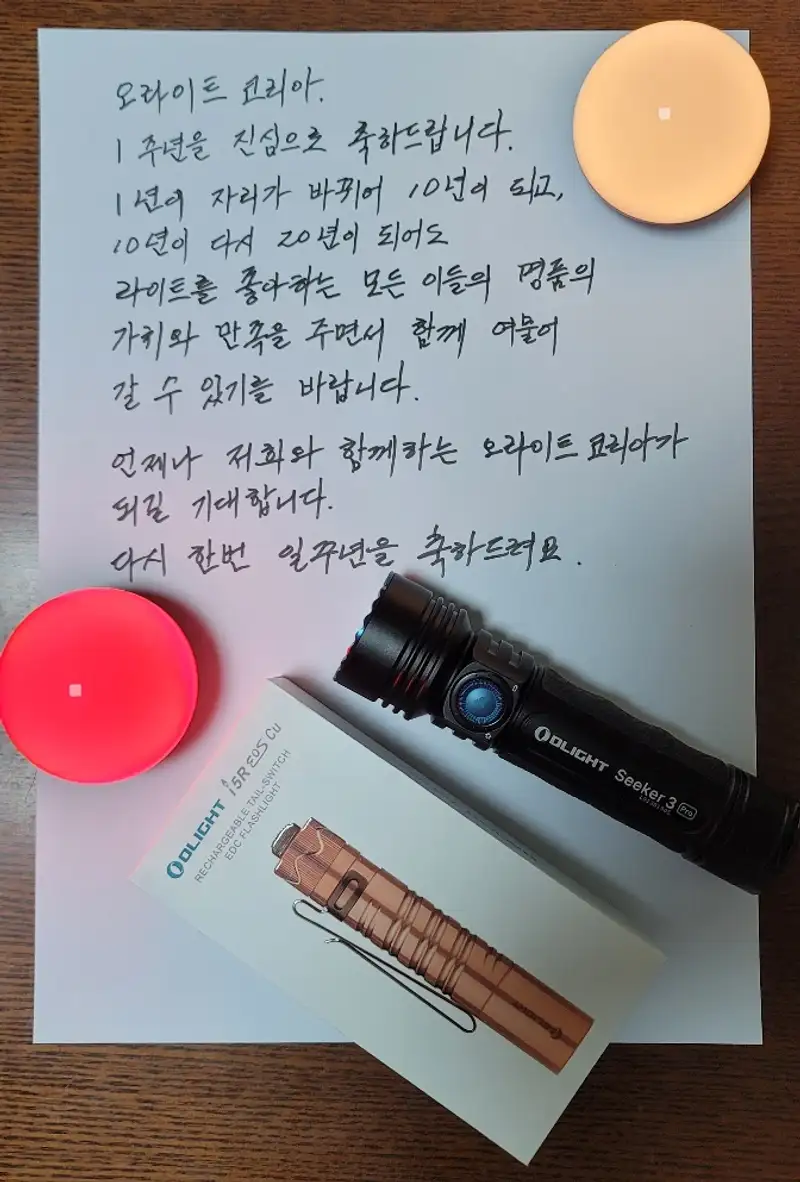 오라이트 코리아.
1 주년을 진심으로 축하드립니다.
1년이 자리가 바뀌어 10년이 되고,
10년이 다시 20년이 되어도
라이트를 좋아하는 모든 이들의 명품의
가치와 만족을 주면서 함께 여물어
갈 수 있기를 바랍니다.
언제나 저희와 함께하는 오라이트 코리아가
되길 기대합니다.
다시 한번 일주년을 축하드려요.
OLIGHT Seeker 3 Pro
OLIGHT i5R EOS Cu
RECHARGEABLE TAIL-SWITCH
EDC FLASHLIGHT